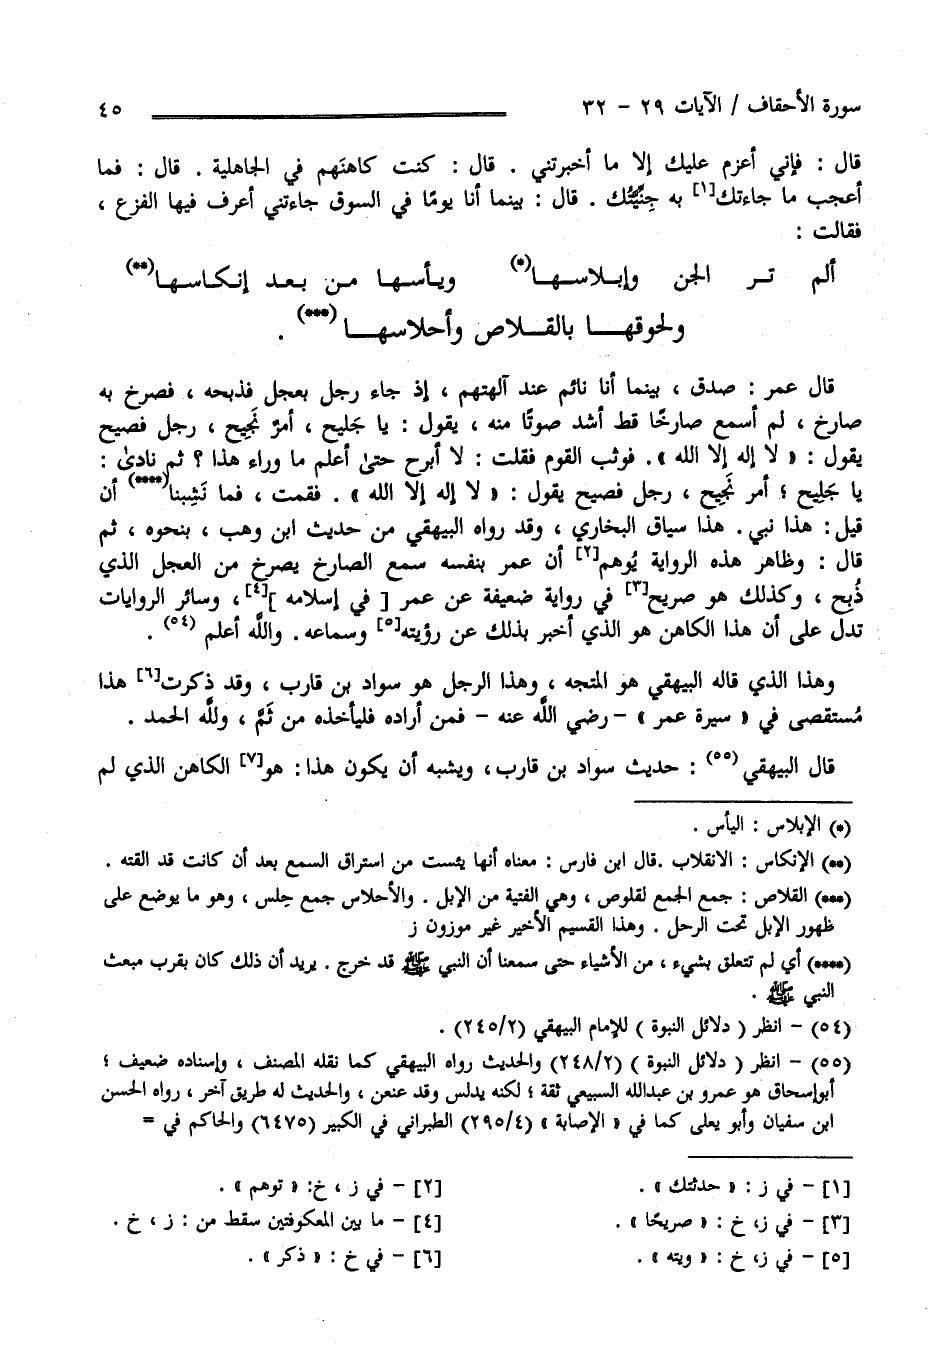 سورة الأحقاف / الآيات ٢٩ - ٣٢ ٤٥
قال : فإني أعزم عليك إلا ما أخبرتني . قال : كنت كاهنَهم في الجاهلية . قال : فما
أعجب ما جاءتك[١] به جِنِّيَّتُك . قال : بينما أنا يومًا في السوق جاءتني أعرف فيها الفزع ،
فقالت :
ألم تر الجن وإبلاسها(*) ويأسها من بعد إنكاسها(**)
ولحوقها بالقلاص وأحلاسها(***) .
قال عمر : صدق ، بينما أنا نائم عند آلهتهم ، إذ جاء رجل بعجل فذبحه ، فصرخ به
صارخ ، لم أسمع صارخًا قط أشد صوتًا منه ، يقول : يا جَليح ، أمرٌ نَجيح ، رجل فصيح
يقول : « لا إله إلا الله ». فوثب القوم فقلت : لا أبرح حتىٰ أعلم ما وراء هذا ؟ ثم نادىٰ :
يا جَلِيح ؛ أمر نَجِيح ، رجل فصيح يقول : « لا إله إلا الله » . فقمت ، فما نَشِبنا(****) أن
قيل : هذا نبي . هذا سياق البخاري ، وقد رواه البيهقي من حديث ابن وهب ، بنحوه ، ثم
قال : وظاهر هذه الرواية يُوهم[٢] أن عمر بنفسه سمع الصارخ يصرخ من العجل الذي
ذُبح ، وكذلك هو صريح[٣] في رواية ضعيفة عن عمر [ في إسلامه ][٤] ، وسائر الروايات
تدل على أن هذا الكاهن هو الذي أخبر بذلك عن رؤيته[٥] وسماعه . واللَّه أعلم (٥٤) .
وهذا الذي قاله البيهقي هو المتجه ، وهذا الرجل هو سواد بن قارب ، وقد ذكرت[٦] هذا
مُستقصى في « سيرة عمر » - رضي اللَّه عنه - فمن أراده فليأخذه من ثَمَّ ، وللَّه الحمد .
قال البيهقي(٥٥) : حديث سواد بن قارب، ويشبه أن يكون هذا : هو[٧] الكاهن الذي لم
(*) الإبلاس : اليأس .
(**) الإنكاس : الانقلاب .قال ابن فارس : معناه أنها يئست من استراق السمع بعد أن كانت قد القته .
(***) القلاص : جمع الجمع لقلوص ، وهي الفتية من الإبل . والأحلاس جمع حِلس ، وهو ما يوضع على
ظهور الإبل تحت الرحل . وهذا القسيم الأخير غير موزون ز
(****) أي لم تتعلق بشيء ، من الأشياء حتى سمعنا أن النبي ﷺ قد خرج . يريد أن ذلك كان بقرب مبعث
النبي ﷺ .
(٥٤) - انظر ( دلائل النبوة ) للإمام البيهقي (٢٤٥/٢) .
(٥٥) - انظر ( دلائل النبوة ) (٢٤٨/٢) والحديث رواه البيهقي كما نقله المصنف ، وإسناده ضعيف ؛
أبوإسحاق هو عمرو بن عبدالله السبيعي ثقة ؛ لكنه يدلس وقد عنعن ، والحديث له طريق آخر ، رواه الحسن
ابن سفيان وأبو يعلى كما في « الإصابة » (٢٩٥/٤) الطبراني في الكبير (٦٤٧٥) والحاكم في =
[١] - في ز : « حدثتك » . [٢] - في ز ، خ: « توهم » .
[٣] - في ز، خ : « صريحًا » . [٤] - ما بين المعكوفتين سقط من : ز ، خ .
[٥] - في ز، خ : « ويته » . [٦] - في خ : « ذكر » .